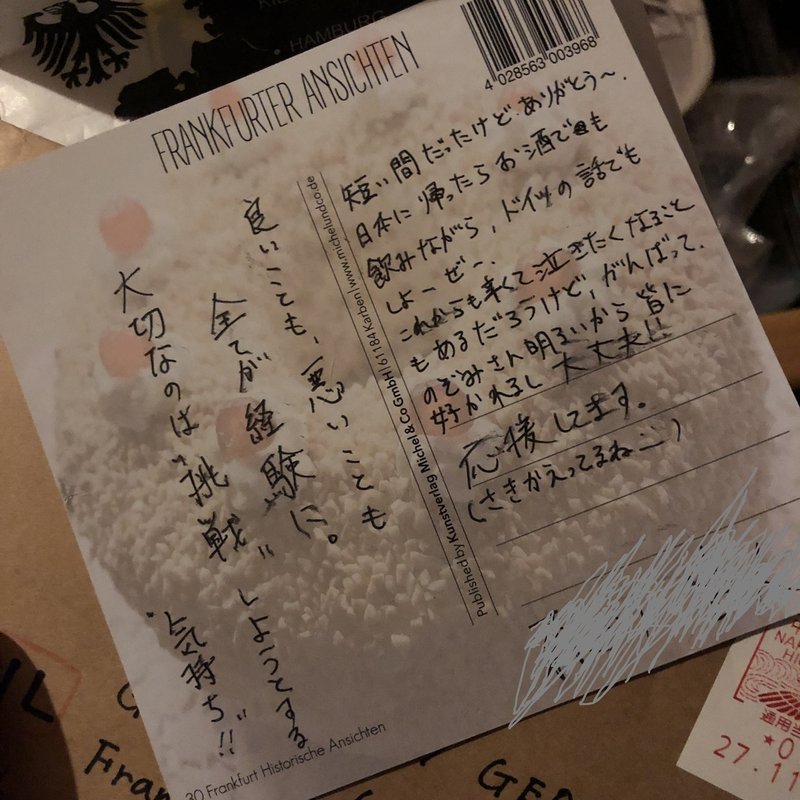 HAMBURG
4 028563 003968
FRANKFURTER ANSICHTEN
短い間だったけど、ありがとう〜.
日本に帰ったらお酒でも
飲みながら、ドイツの話でも
しよーぜー.
これからも辛くて泣きたくなること
もあるだろうけど、がんばって.
のぞみさん明るいから皆に
好かれるし 大丈夫!!
応援してます。
(さきかえってるね
良いことも、悪いことも
全てが"経験"に。
大切なのは"挑戦"しようとする
"気持ち"!!
Published by Kunstverlag Michel & Co GmbH | 61184 Karben | www.michelundco.de
30 Frankfurt Historische Ansichten
27.11